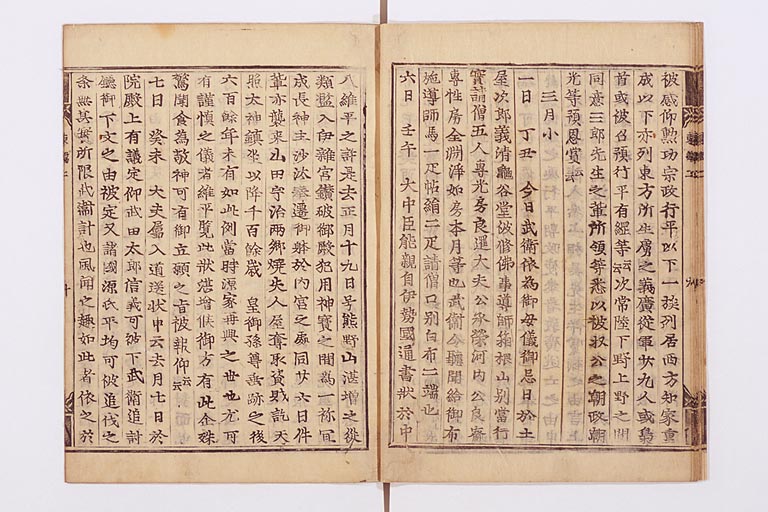 被感仰勲功宗政行平以下一族列居西方知家重
成以下亦列東方所生虜之義廣従軍廿九人或梟
首或被召預行平有經等云云次常陸下野上野之間
同意三郎先生之輩所領等悉以被収公之朝政朝
光等預恩賞云云
三月小
一日丁丑 今日武衛依為御母儀御忌日於土
屋次郎義清龜谷堂被修佛事導師箱根山別當行
實請僧五人專光房良暹大夫公承榮河内公良齋
專性房全渊淨如房本月等也武衛令聽聞給御布
施導師馬一疋帖絹二疋請僧口別白布二端也
六日壬午 大中臣能親自伊勢國通書状於中
八維平之許是去正月十九日号熊野山湛増之従
類濫入伊雜宮鑽破御殿犯用神寶之間為一祢宜
成長神主沙汰奉遷御躰於内宮之處同廿六日件
輩亦襲来山田宇治两郷燒失人屋奪取資財訖天
照太神鎮坐以降千百餘歳 皇御孫尊垂跡之後
六百餘年未有如此例當時源家再興之世也尤可
有謹慎之儀者維平覽此状湛增候御方有此企殊
驚聞食為敬神可有御立願之旨被報仰云云
七日癸未 大夫屬入道送状申云去月七日於
院殿上有議定仰武田太郎信義可被下武衛追討
廳御下文之由被定又諸國源氏平均可被追伐之
条無其實所限武衛計也風聞之趣如此者依之於